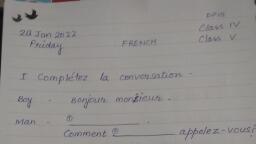 20 Jan 2022
Friday
FRENCH
Class IV
Class V
I Complétez la conversation -
Boy - Bonjour monsieur.
Man - ① ____________.
Comment ② ____________ appelez-vous?